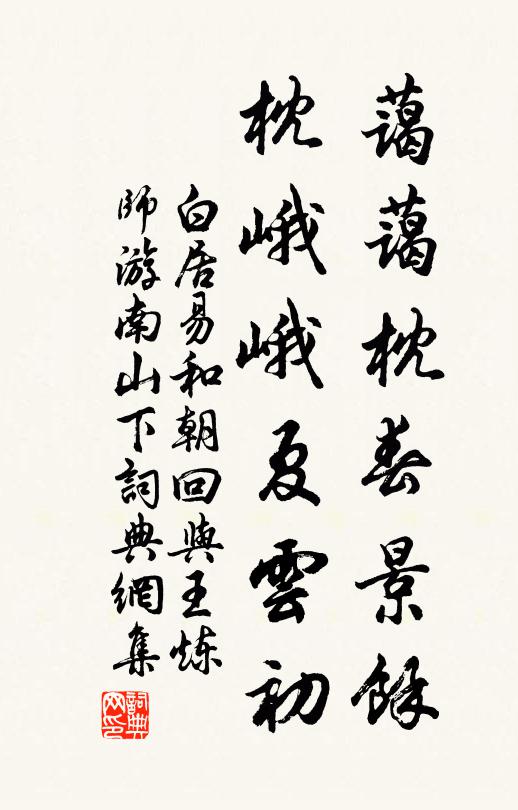 藹藹枕春景餘
枕峨峨夏雲初
白居易和朝回與王煉
師游南山下詞典網集
詞典
网印